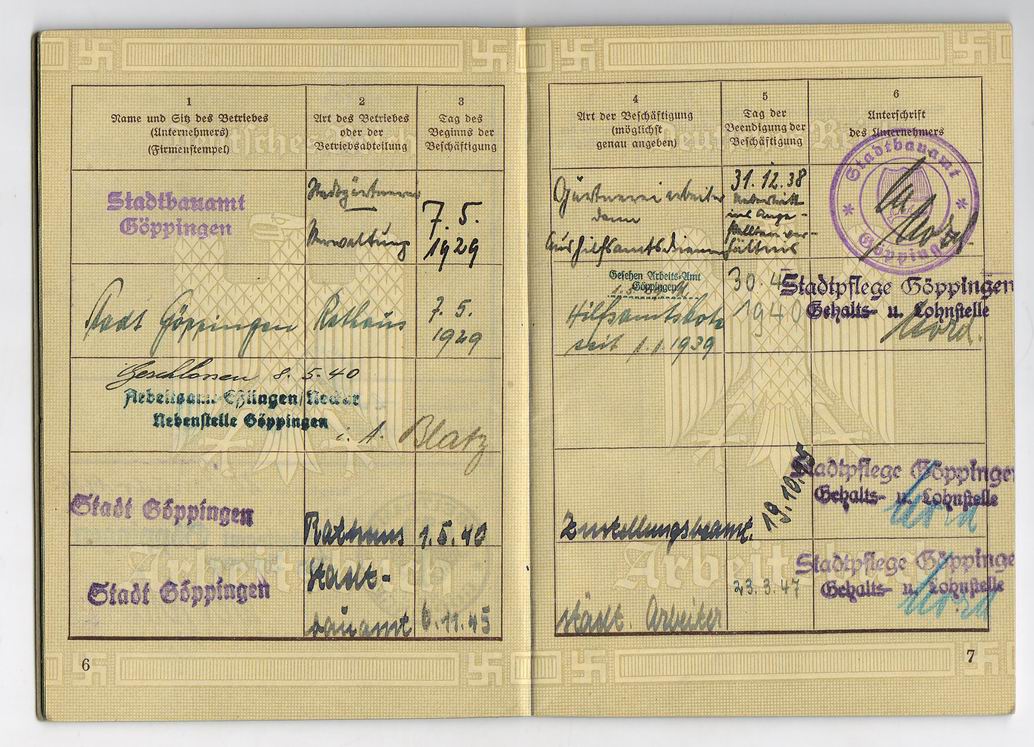 1
Name und Sitz des Betriebes
(Unternehmers)
(Firmenstempel)
2
Art des Betriebes
oder der
Betriebsabteilung
3
Tag des
Beginns der
Beschäftigung
Stadtbauamt
Göppingen
Stadtgärtnerei
Verwaltung
7.5.
1929
Stadt Göppingen
Rathaus
7.5.
1929
Geschlossen 8.5.40
Arbeitsamt Eßlingen/Neckar
Nebenstelle Göppingen
i. A. Blatz
Stadt Göppingen
Rathaus
1.5.40
Stadt Göppingen
Stadt-
bauamt
6.11.45
Arbeitsbuch
6
4
Art der Beschäftigung
(möglichst
genau angeben)
5
Tag der
Beendigung der
Beschäftigung
6
Unterschrift
des Unternehmers
Gärtnereiarbeiter
dann
Aushilfsamtsdiener
31.12.38
Uebertritt
ins Ange-
stelltenver-
hältnis
Stadtbauamt
Göppingen
Gesehen Arbeits-Amt
Göppingen
Hilfsamtsbote
seit 1.1.1939
30.4.
1940
Stadtpflege Göppingen
Gehalts- u. Lohnstelle
Zustellungsbeamt.
19.10.45
Stadtpflege Göppingen
Gehalts- u. Lohnstelle
städt. Arbeiter
23.3.47
Stadtpflege Göppinge
Gehalts- u. Lohnstelle
7